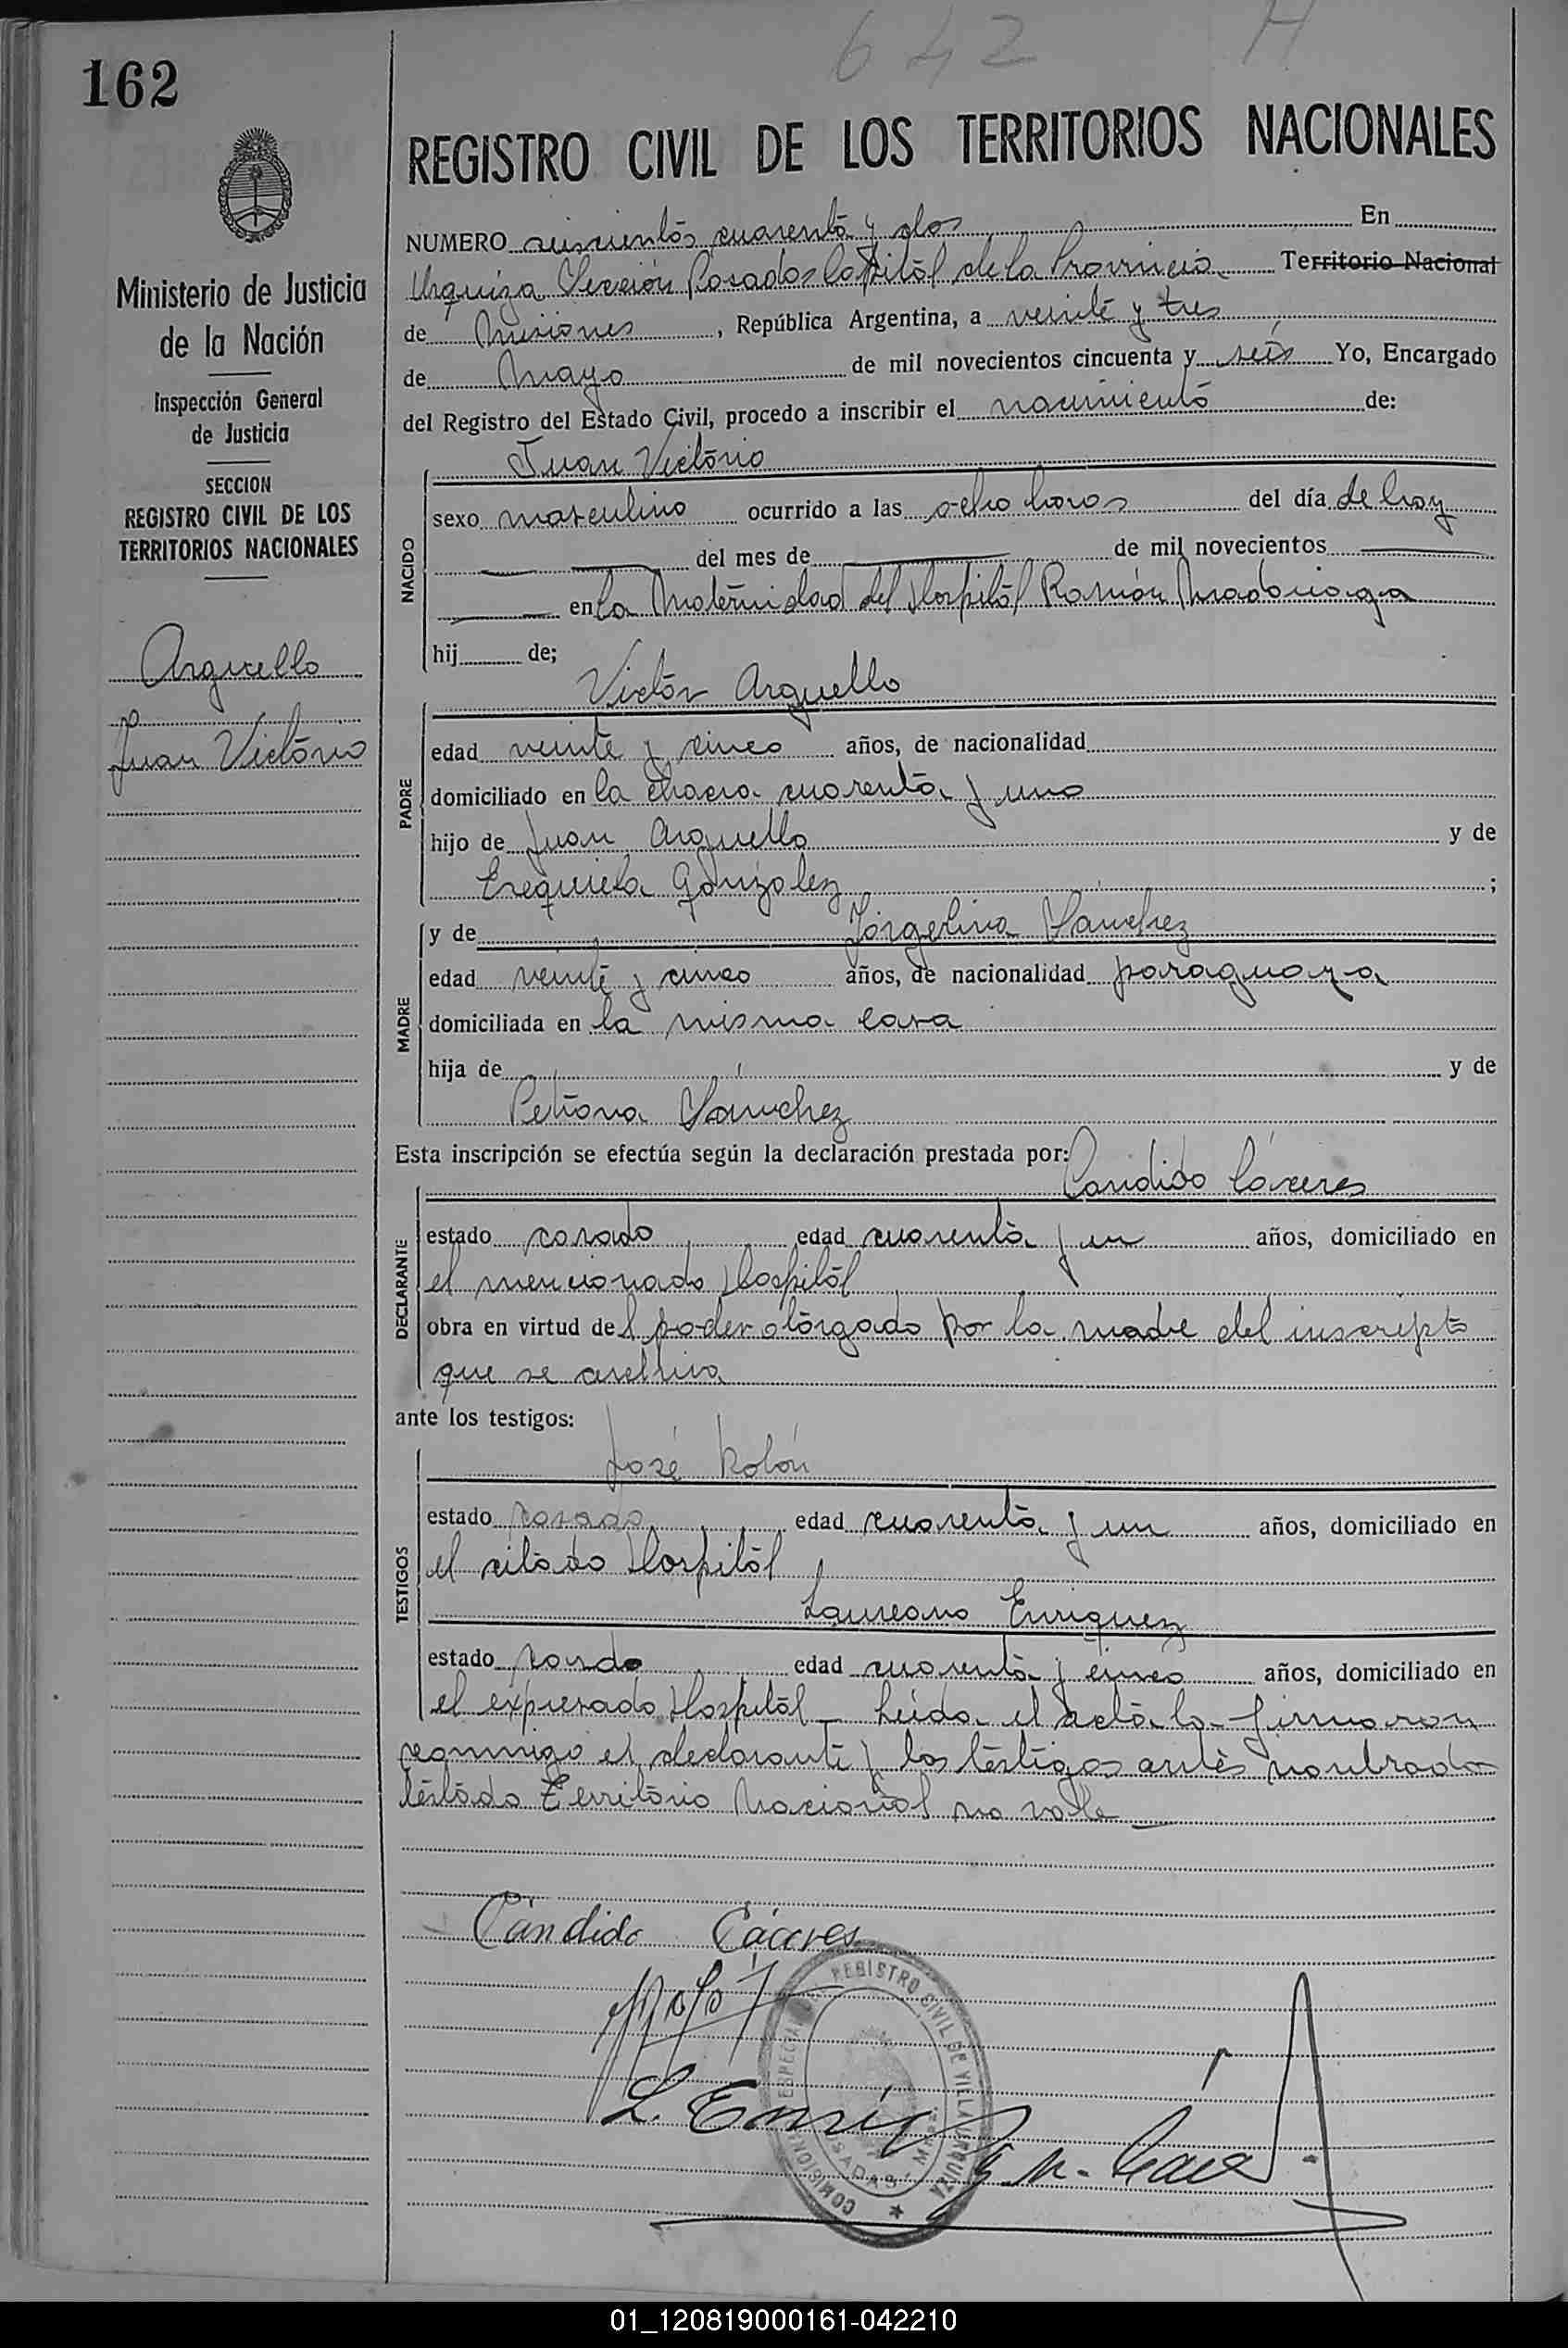 642 H
162
REGISTRO CIVIL DE LOS TERRITORIOS NACIONALES
Ministerio de Justicia
de la Nación
Inspección General
de Justicia
SECCION
REGISTRO CIVIL DE LOS
TERRITORIOS NACIONALES
Arguello
Juan Victorio
NUMERO seiscientos cuarenta y dos En
Urquiza Sección Posadas Capital de la Provincia Territorio Nacional
de Misiones, República Argentina, a veinte y tres
de Mayo de mil novecientos cincuenta y seis Yo, Encargado
del Registro del Estado Civil, procedo a inscribir el nacimiento de:
Juan Victorio
NACIDO
sexo masculino ocurrido a las ocho horas del día de hoy
del mes de de mil novecientos
en la Maternidad del Hospital Ramón Madariaga
hij de;
Victor Arguello
PADRE
edad veinte y cinco años, de nacionalidad
domiciliado en la chacra cuarenta y uno
hijo de Juan Arguello y de
Ezequiela González ;
y de Jorgelina Sánchez
MADRE
edad veinte y cinco años, de nacionalidad paraguaya
domiciliada en la misma casa
hija de y de
Petrona Sánchez
Esta inscripción se efectúa según la declaración prestada por:
Candido Cáceres
DECLARANTE
estado casado edad cuarenta y un años, domiciliado en
el mencionado Hospital
obra en virtud del poder otorgado por la madre del inscripto
que se archiva
ante los testigos:
José Rolón
TESTIGOS
estado casado edad cuarenta y un años, domiciliado en
el citado Hospital
Laureano Enriquez
estado casado edad cuarenta y cinco años, domiciliado en
el expresado Hospital Leída el acta la firmaron
conmigo el declarante y los testigos antes nombrados
testado Territorio Nacional no vale
Cándido Cáceres
L. Enriq
COMISION ESPECIAL REGISTRO CIVIL DE VILLA URQUIZA
POSADAS
01_120819000161-042210